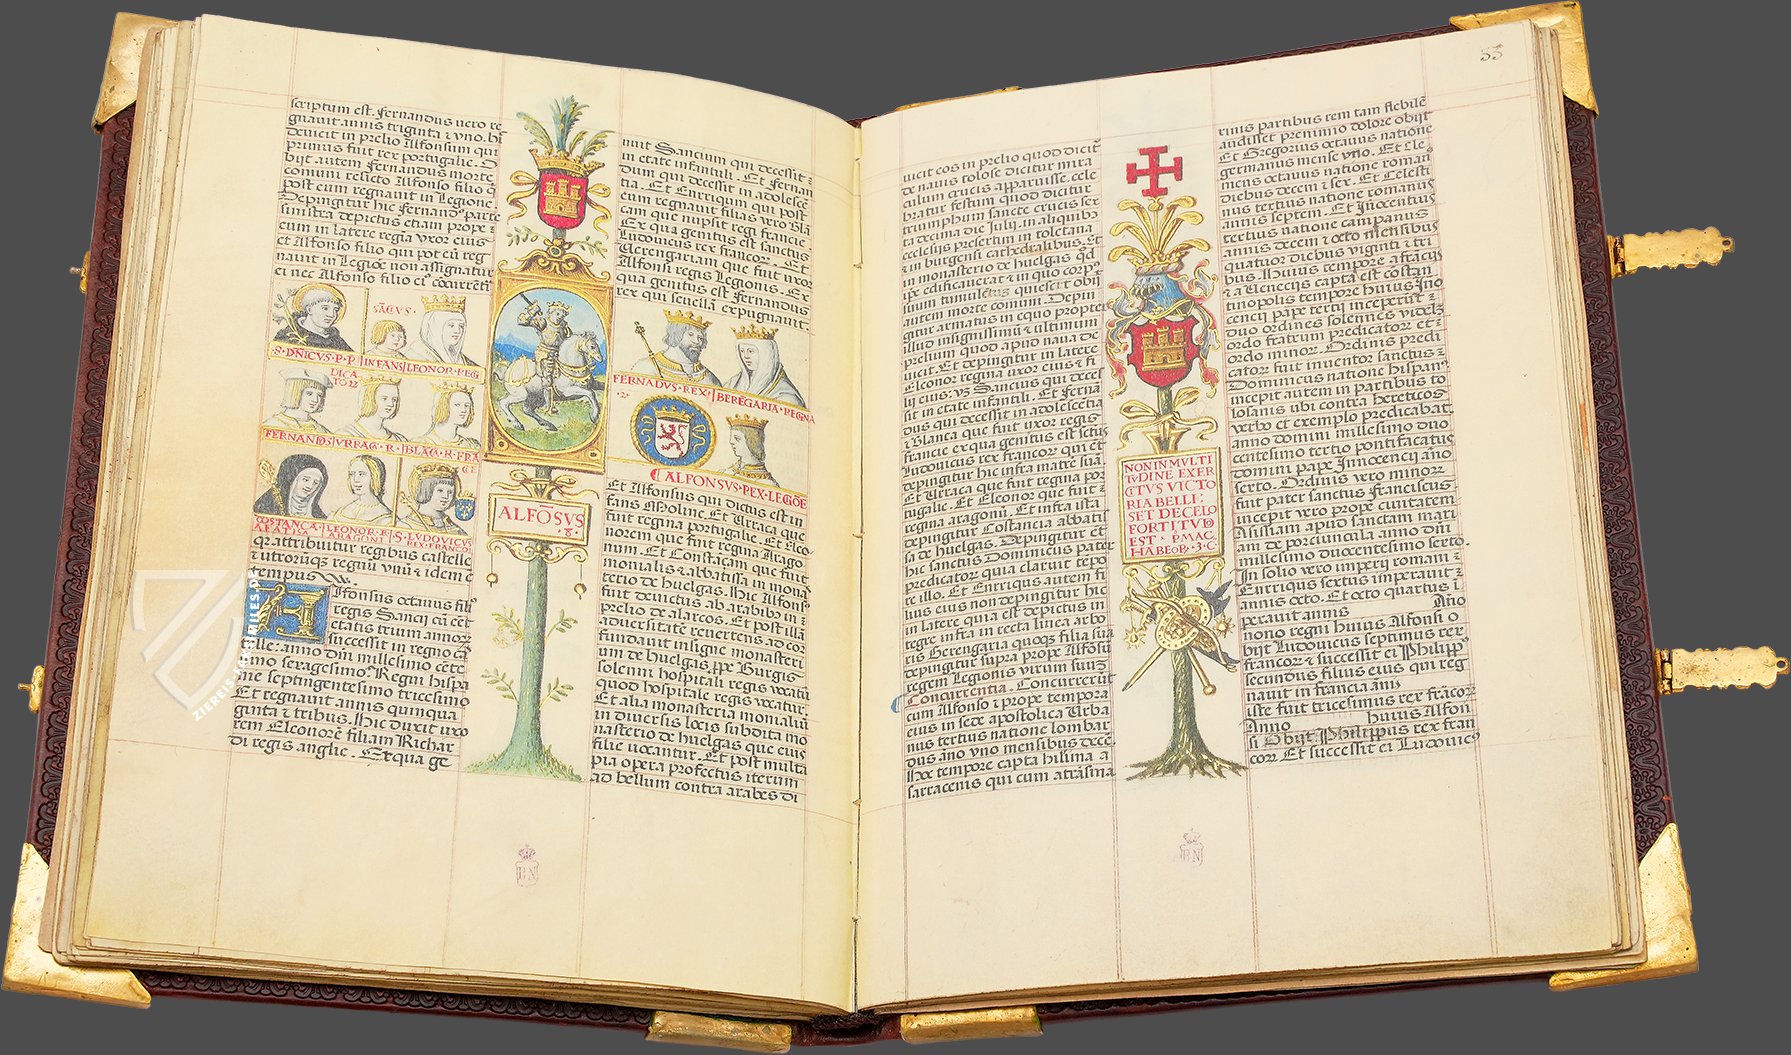 scriptum est. Fernandus uero re
gnauit annis triginta & vno. hi
deuicit in prelio Alfonsum qui
primus fuit rex portugalie. O
bijt autem Fernandus morte
comuni relicto Alfonso filio q̄
post eum regnauit in Legione
Depingitur hic Fernandꝰ parte
sinistra depictus etiam prope
eum in latere regia vxor eius
et Alfonso filio qui pot eū reg
nauit in Legiōe non assignatur
ei nec Alfonso filio eiꝰ cōcurrēti
S. DÑICVS. P. P.
SĀCVS.
INFANS
LEONOR. REG
DICA
TOR
FERNANDS
VRRAC. R.
BLACA. R. FRA
CE
COSTANCA.
ABATISA
LEONOR. R.
ARAGONI
S. LVDOVICVS
REX. FRANCOR
qr attribuitur regibus castelle
& utrorūqꝫ regnū vnū & idem ē
tempus
Alfonsus octauus filꝰ
regis Sancij cū eēt
etatis trium annoꝝ
successit in regno ca
lle: anno dn̄i millesimo cēte
imo sexagesimo. Regni hispa
nie septingentesimo tricesimo
Et regnauit annis quinqua
ginta & tribus. Hic duxit uxo
rem Eleonorē filiam Richar
di regis anglie. Ex qua ge
ALFŌSVS
.8.
nuit Sancium qui decessit
in etate infantuli. Et Fernan
dum qui decessit in adolescē
tia. Et Enriqum qui post
eum regnauit filias vero Bla
cam que nupsit regi francie
Ex qua genitus est sanctus
Ludouicus rex francoꝝ. Et
Verengariam que fuit uxor
Alfonsi regis Legionis. Ex
qua genitus est Fernandus
rex qui seuillā expugnauit.
FERNADVS. REX.
.2.
BEREGARIA. REGINA
ALFONSVS. REX. LEGIŌE
Et Alfonsus qui dictus est in
fans Moline Et Urraca que
fuit regina portugalie. Et Eleo
norem que fuit regina Arago
num. Et Constāçam que fuit
monialis & abbatissa in mona
terio de huelgas. Hic Alfonsꝰ
fuit deuictus ab arabibꝫ in
prelio de alarcos. Et post illā
aduersitatē reuertens ad cor
fundauit insigne monasteri
um de huelgas ꝓpe Burgis
solenni hospitali regis vocatū
quod hospitale regis vocatur.
Et alia monasteria monialiū
in diuersis locis subdita mo
nasterio de huelgas que eius
filie uocantur. Et post multa
pia opera profectus iterum
ad bellum contra arabes di
53
uicit eos in prelio quod dicit̄
de nauis tolose dicitur mira
culum crucis apparuisse. cele
bratur festum quod dicitur
triumphum sancte crucis sex
ta decima die Julij. in aliquibꝰ
ecclesijs presertim in toletana
& in burgensi cathedralibus. Et
in monasterio de huelgas qd̄
ipse edificauerat & in quo corpꝰ
suum tumulatus quiescit obijt
autem morte comuni. Depin
gitur armatus in equo propter
illud insignissimū & ultimum
prelium quod apud naua de
uicit. Et depingitur in latere
Eleonor regina uxor eius & fi
lij eius: vꝫ Sancius qui decef
sit in etate infantili. Et Ferna
dus qui decessit in adolescētia
& Blanca que fuit uxor regis
francie ex qua genitus est sct̄us
Ludouicus rex francoꝝ qui et
depingitur hic infra matrē suā
Et Urraca que fuit regina por
tugalie. Et Eleonor que fuit
regina aragonū. Et infra ista
depingitur Costancia abbatif
sa de huelgas. Depingitur et̄
hic sanctus Dominicus pater
predicator quia claruit tēpo
re illo. Et Enriqus autem fi
lius eius non depingitur hic
in latere quia est depictus in
regre infra in recta linea arbo
ris Berengaria quoqꝫ filia sua
depingitur supra prope Alfōsū
regem Legionis virum suuꝫ
Concurrentia. Concurrerūt
cum Alfonso & prope tempora
eius in sede apostolica Urba
nus tertius natione lombar
dus āno vno mensibus decē.
Hoc tempore capta hilima a
sarracenis qui cum atrasma
NON IN MVLTI
TVDINE EXER
CITVS VICTO
RIA BELLI:
SET DE CELO
FORTITVDO
EST. P. MAC
HABEOꝝ. 3. C.
rinis partibus rem tam flebilē
audisset prenimio dolore obijt
Et Gregorius octauus natione
germanus mense vno. Et Cle
mens octauus natione roman
diebus decem & sex. Et Celesti
nus tertius natione romanus
annis septem. Et Inocentius
tertius natione campanus
annis decem & octo mensibus
quatuor diebus viginti & tri
bus. Huius tempore a frācis
& a Uenecijs capta est costan
tinopolis tempore huius Ino
cencij pape tertij inceperūt
duo ordines solennes videlꝫ
ordo fratrum predicatoꝝ et
ordo minoꝝ. Ordinis predi
catoꝝ fuit inuentor sanctus
Dominicus natione hispanꝰ
incepit autem in partibus to
losanis ubi contra hereticos
verbo et exemplo predicabat
anno domini millesimo duo
centesimo tertio pontificatus
domini pape Innocencij āno
sexto. Ordinis vero minoꝝ
fuit pater sanctus Franciscus
incepit vero prope ciuitatem
Assisiam apud sanctam mari
am de porciuncula anno dn̄i
millesimo duocentesimo sexto.
In solio vero imperij romani
Enriqus sextus imperauit
annis octo. Et octo quartus i
perauit annis Ano
nono regni huius Alfonsi o
bijt Ludouicus septimus rex
francoꝝ & successit ei Philippꝰ
secundus filius eius qui reg
nauit in francia ānis
iste fuit tricesimus rex frācoꝝ
Anno huius Alfon
si Obijt Philippus rex fran
coꝝ Et successit ei Ludouicꝰ
BN
BN
ZIEREIS-FACSIMILES.DE